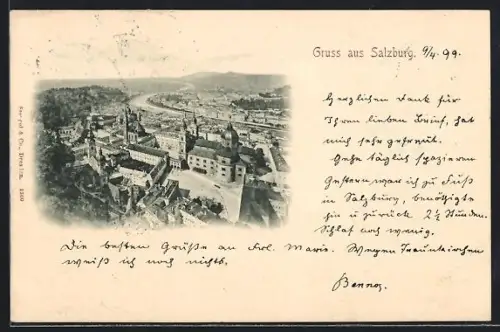 Gruss aus Salzburg. 9/4. 99.
Herzlichen Dank für
Ihren lieben Brief, hat
mich sehr gefreut.
Gehe täglich spazieren
Gestern war ich zu Fuß
in Salzburg, benötigte
hin u zurück 2½ Stunden.
Schlaf noch wenig.
Die besten Grüße an Frl. Marie. Wegen Traunkirchen
weiß ich noch nichts.
Stengel & Co., Dresden. 1500